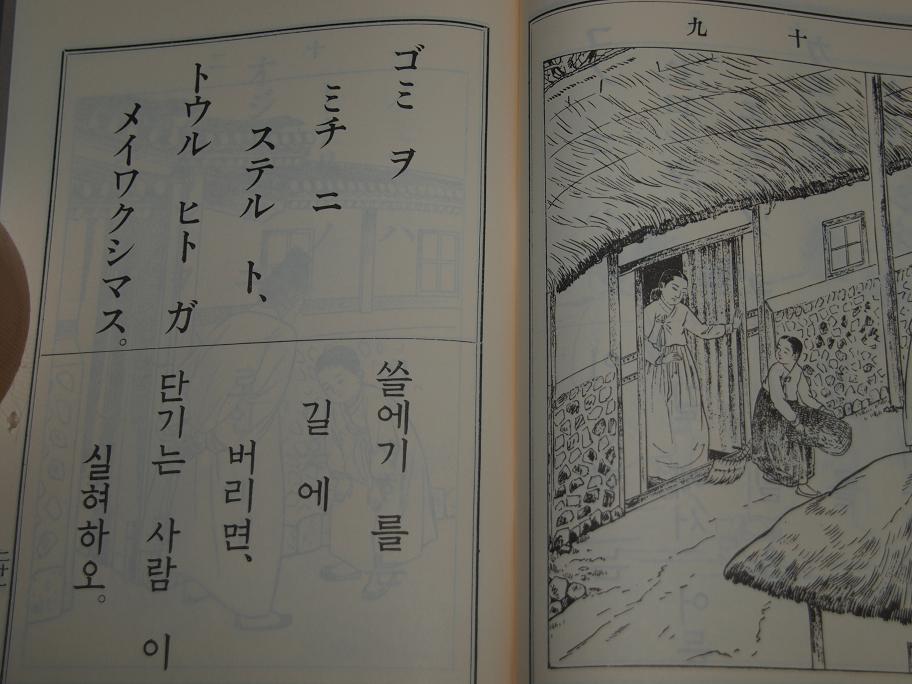 十九
ゴミ ヲ
ミチ ニ
ステル ト、
トウル ヒト ガ
メイワクシマス。
쓸에기 를
길 에
버리면、
단기는 사람 이
실혀하오。